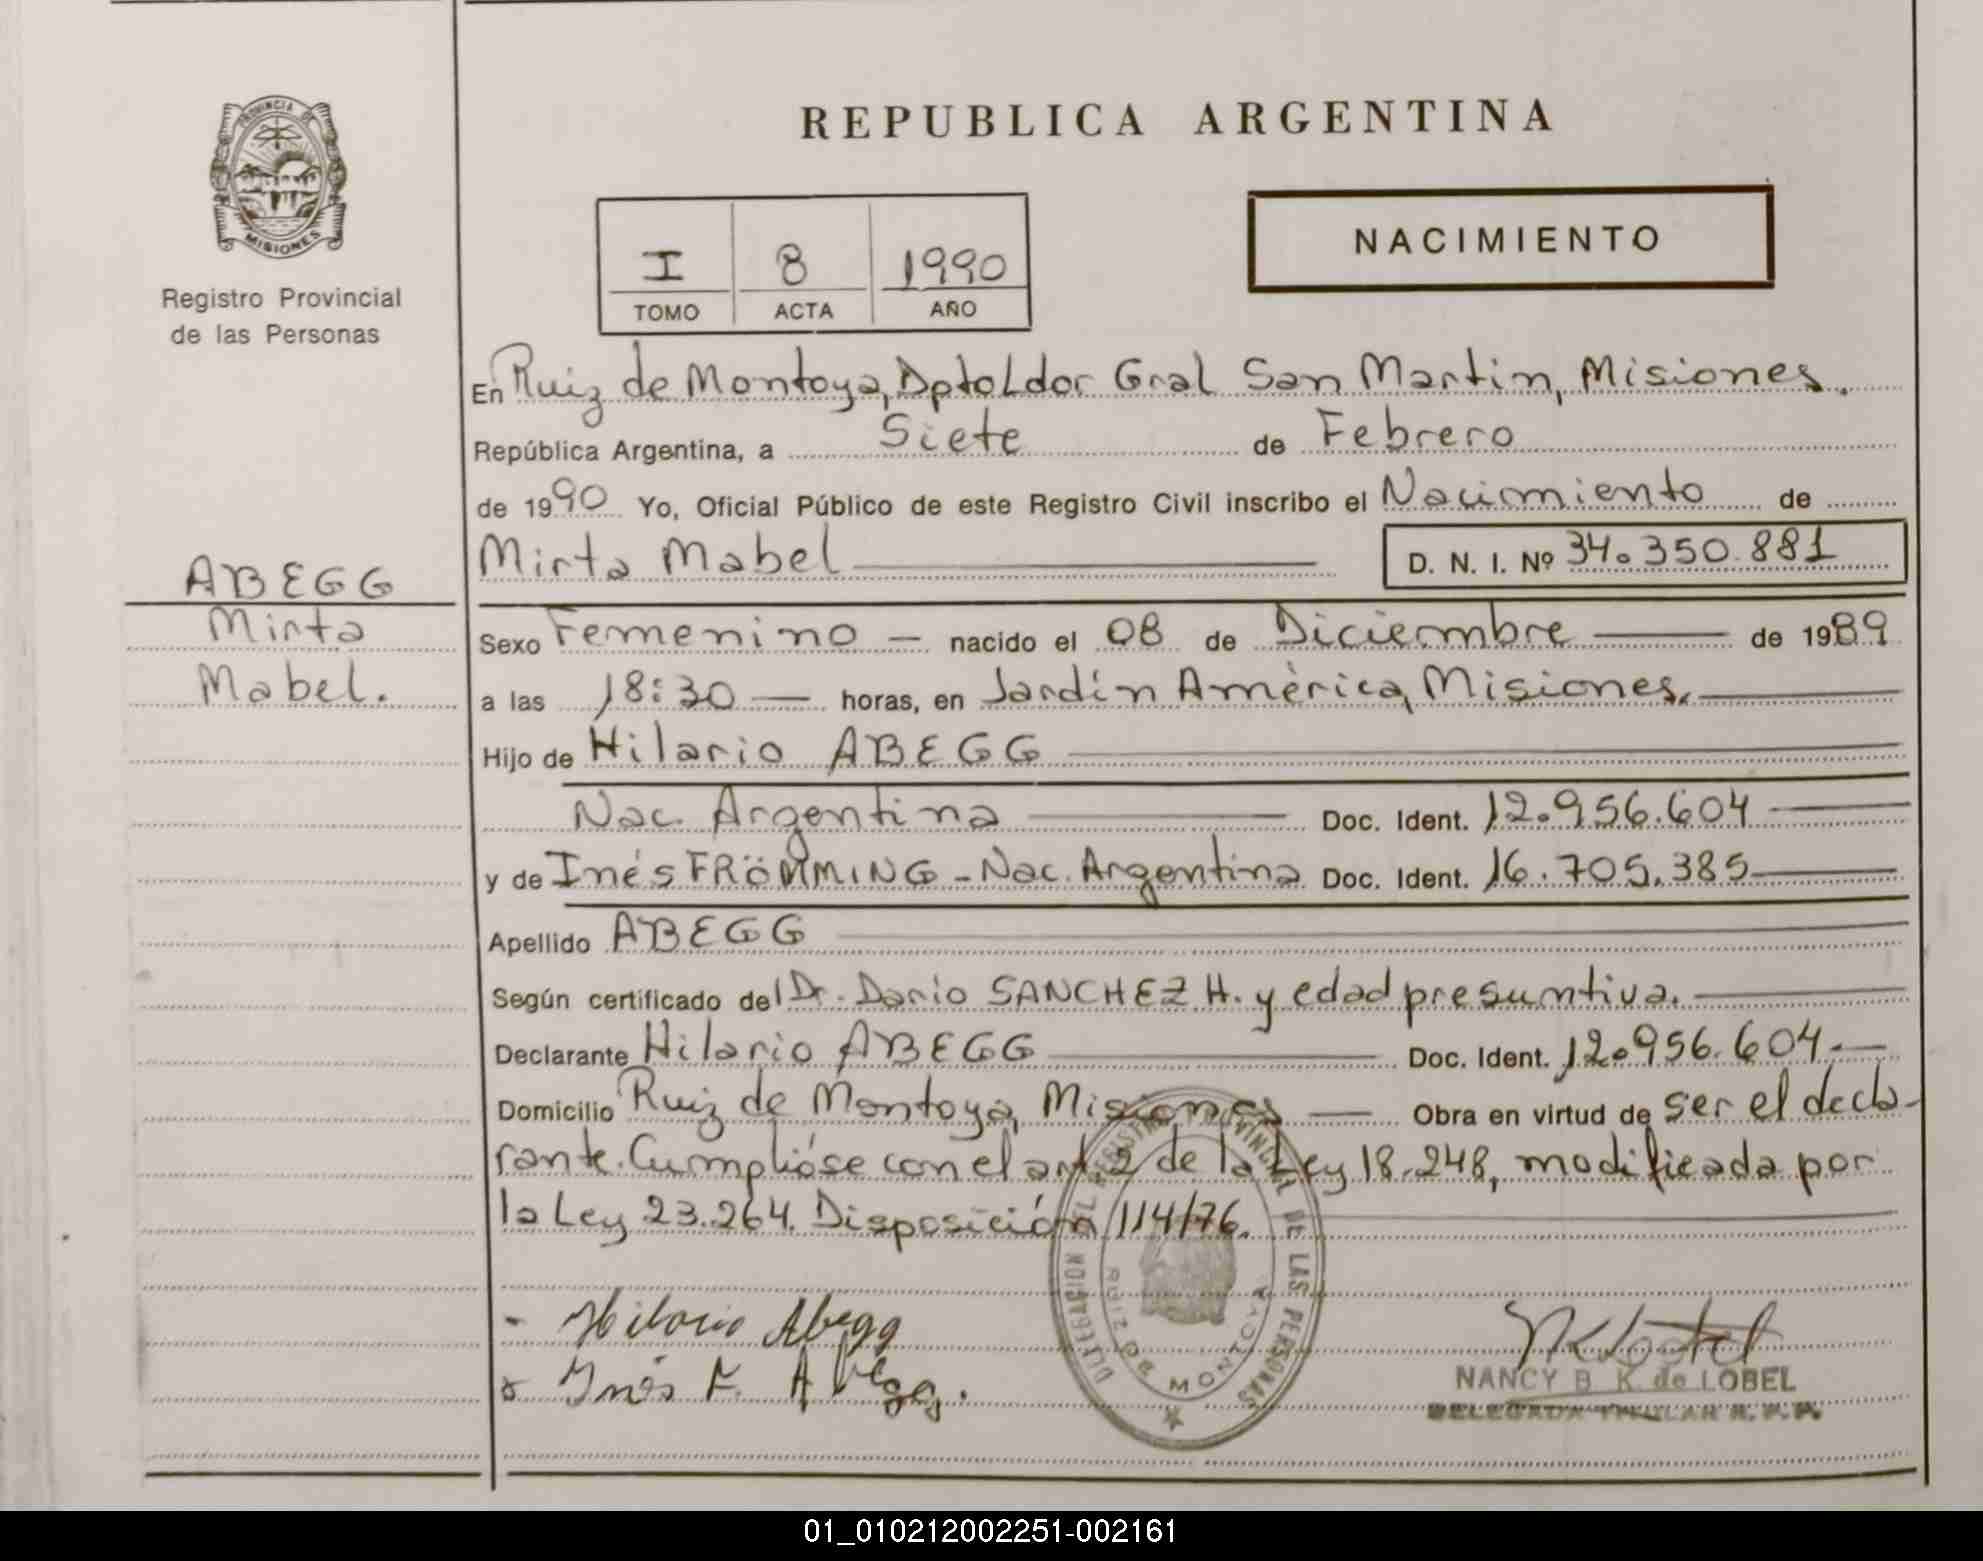 PROVINCIA DE
MISIONES
Registro Provincial
de las Personas
REPUBLICA ARGENTINA
I 8 1990
TOMO ACTA AÑO
NACIMIENTO
En Ruiz de Montoya, Dpto Ldor Gral San Martin, Misiones.
República Argentina, a Siete de Febrero
de 1990 Yo, Oficial Público de este Registro Civil inscribo el Nacimiento de
Mirta Mabel D. N. I. Nº 34.350.881
ABEGG
Mirta
Mabel.
Sexo Femenino - nacido el 08 de Diciembre de 1989
a las 18:30 horas, en Jardín América, Misiones.
Hijo de Hilario ABEGG
Nac. Argentina Doc. Ident. 12.956.604
y de Inés FRÖMMING - Nac. Argentina Doc. Ident. 16.705.385
Apellido ABEGG
Según certificado del Dr. Darío SANCHEZ H. y edad presuntiva.
Declarante Hilario ABEGG Doc. Ident. 12.956.604.-
Domicilio Ruiz de Montoya, Misiones Obra en virtud de ser el decla-
rante. Cumplióse con el art. 2 de la Ley 18.248, modificada por
la Ley 23.264. Disposición 114/76.
DELEGACION DEL REGISTRO PROVINCIAL DE LAS PERSONAS
RUIZ DE MONTOYA
- Hilario Abegg
x Inés F. Abegg.
NANCY B. K. de LOBEL
DELEGADA TITULAR R. P. P.
01_010212002251-002161